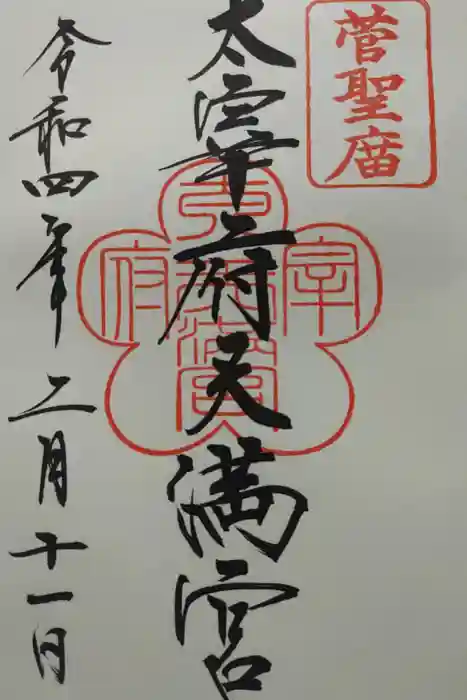 菅聖庿
太宰府天満宮
令和四年二月十一日